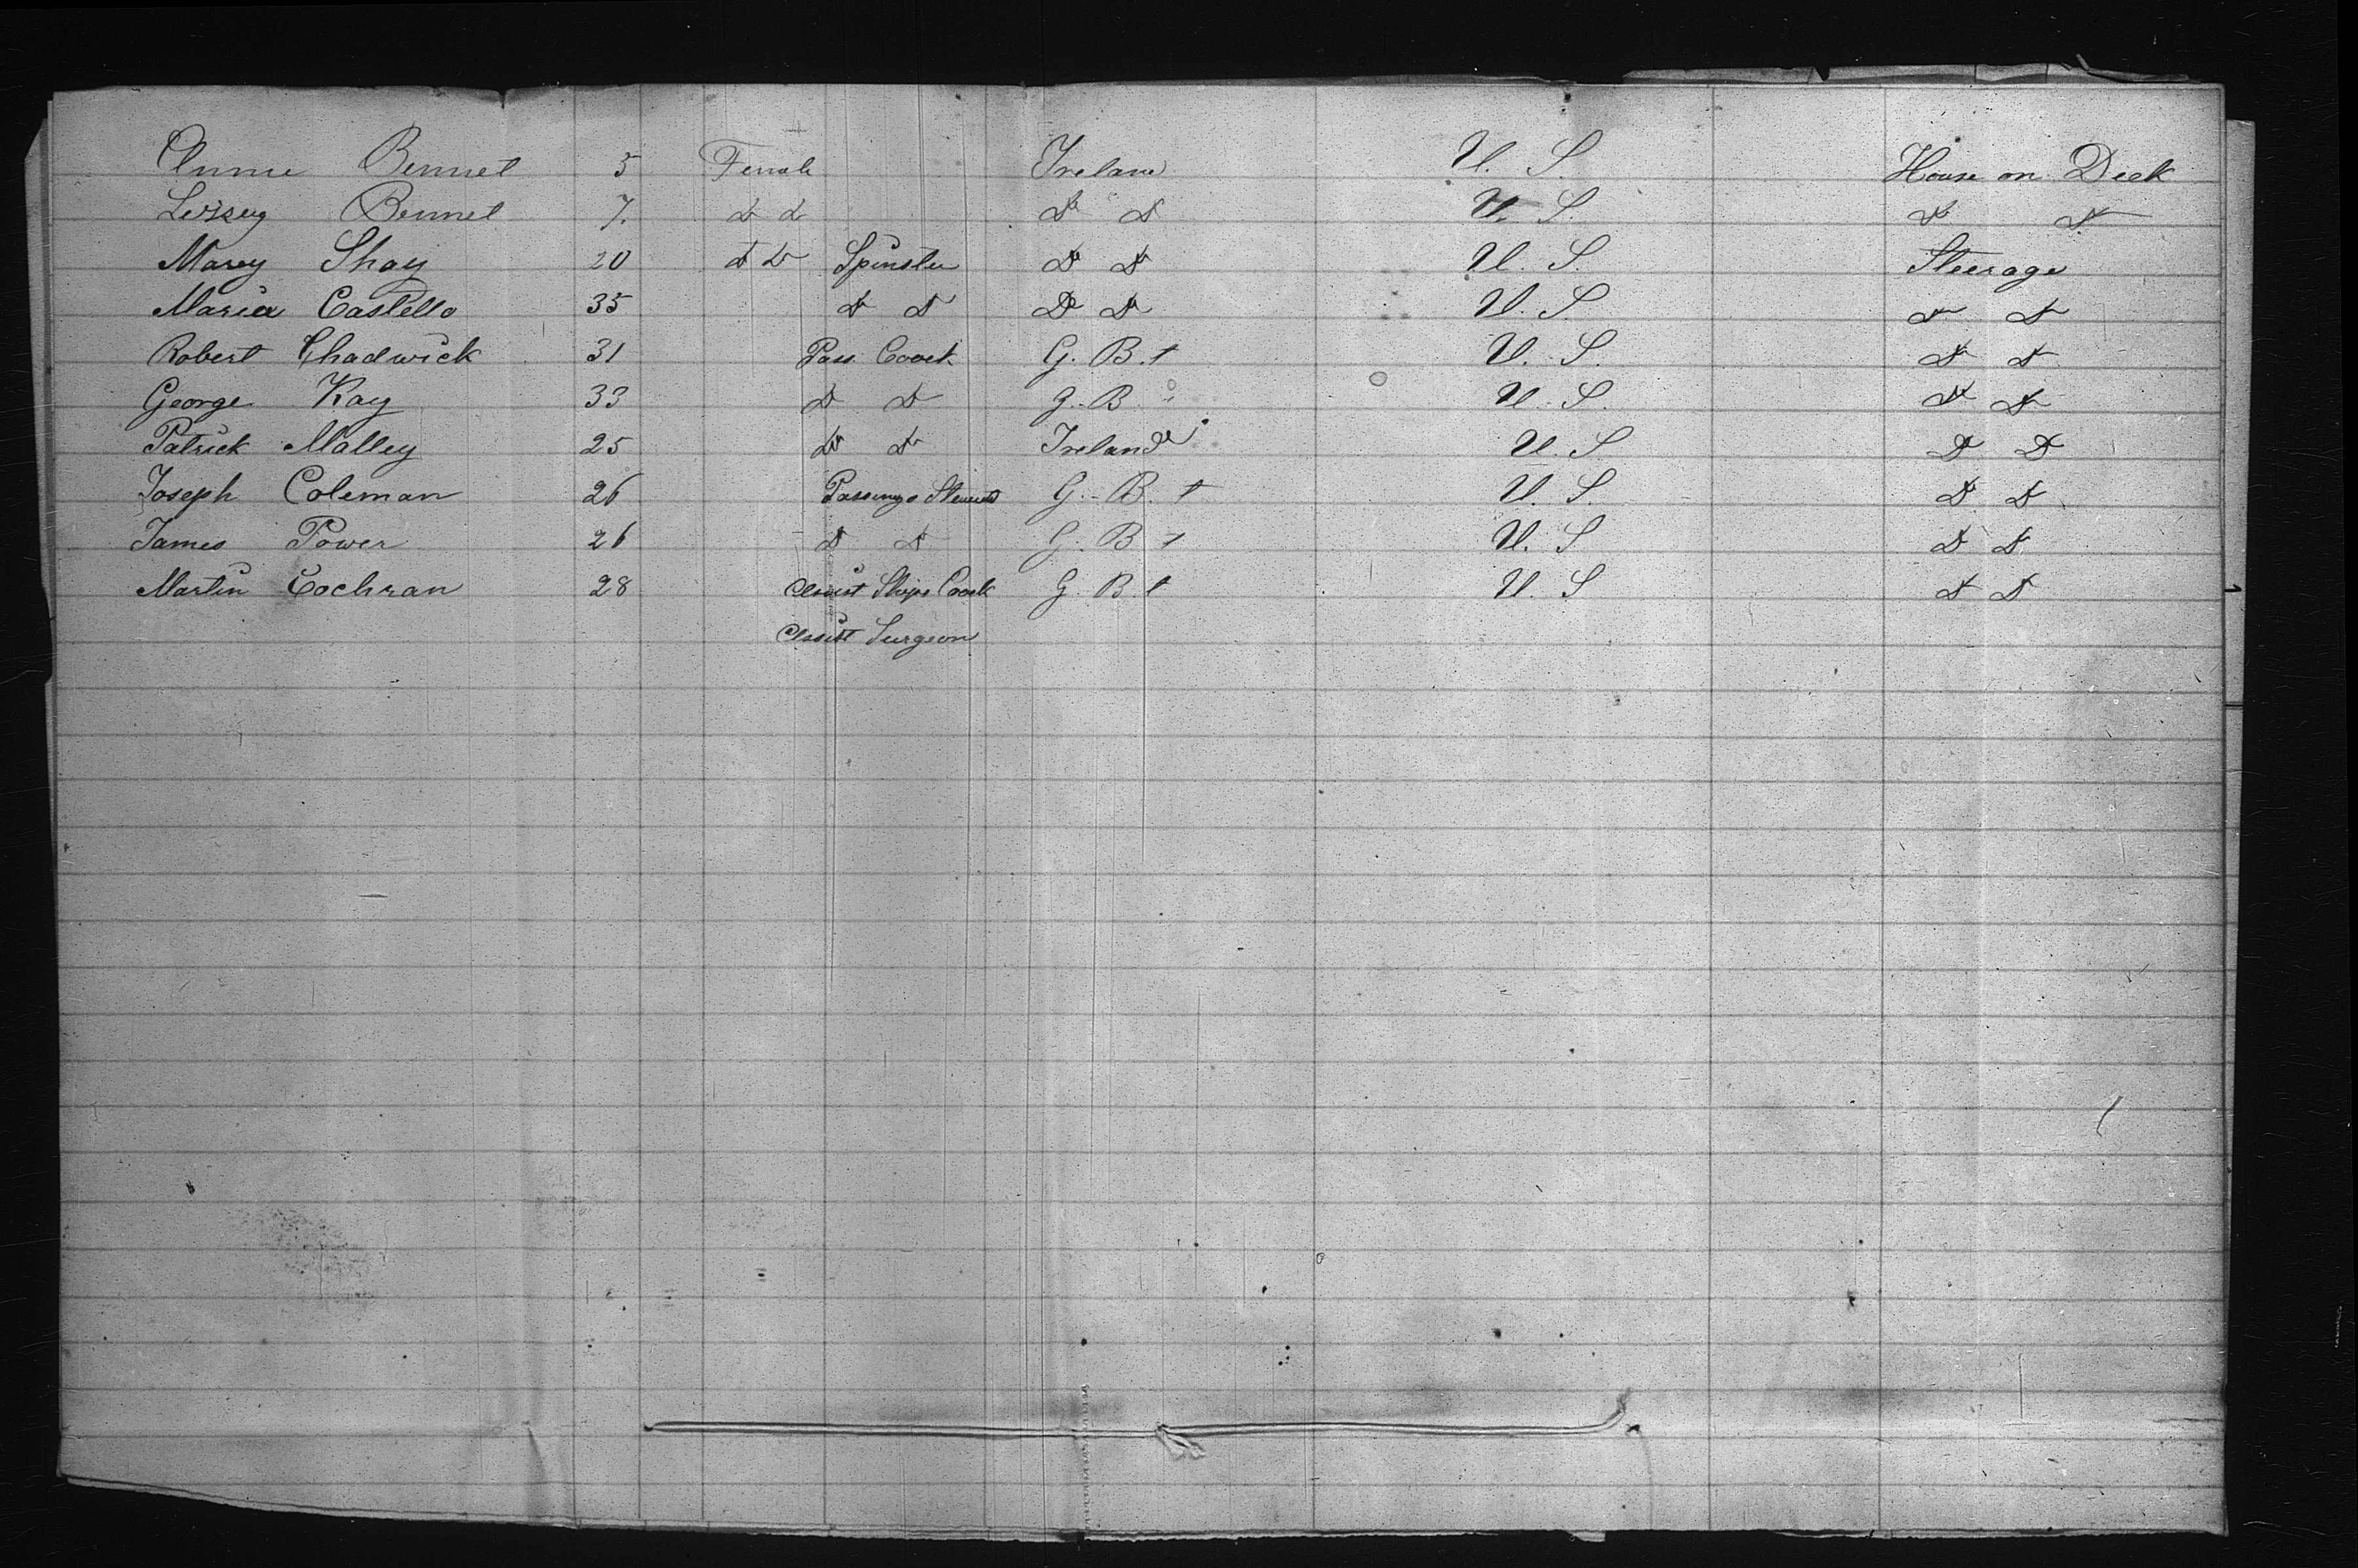 Annie Bennet 5 Female Ireland U. S. House on Deck
Bennet 7. D D D D U. S. D D
Marey Shay 20 D D Spinster D D U. S. Steerage
Maria Castello 35 D D D D U. S D D
Robert Chadwick 31 Pass. Cook G. B. t U. S. D D
George Kay 33 D D G. B U. S. D D
Patrick Malley 25 D D Ireland U. S D D
Joseph Coleman 26 G. B. t U. S. D D
James Power 26 D D G. B t U. S D D
Martin Cochran 28 Assist Ships Cook G. B t U. S D D
Assist Surgeon